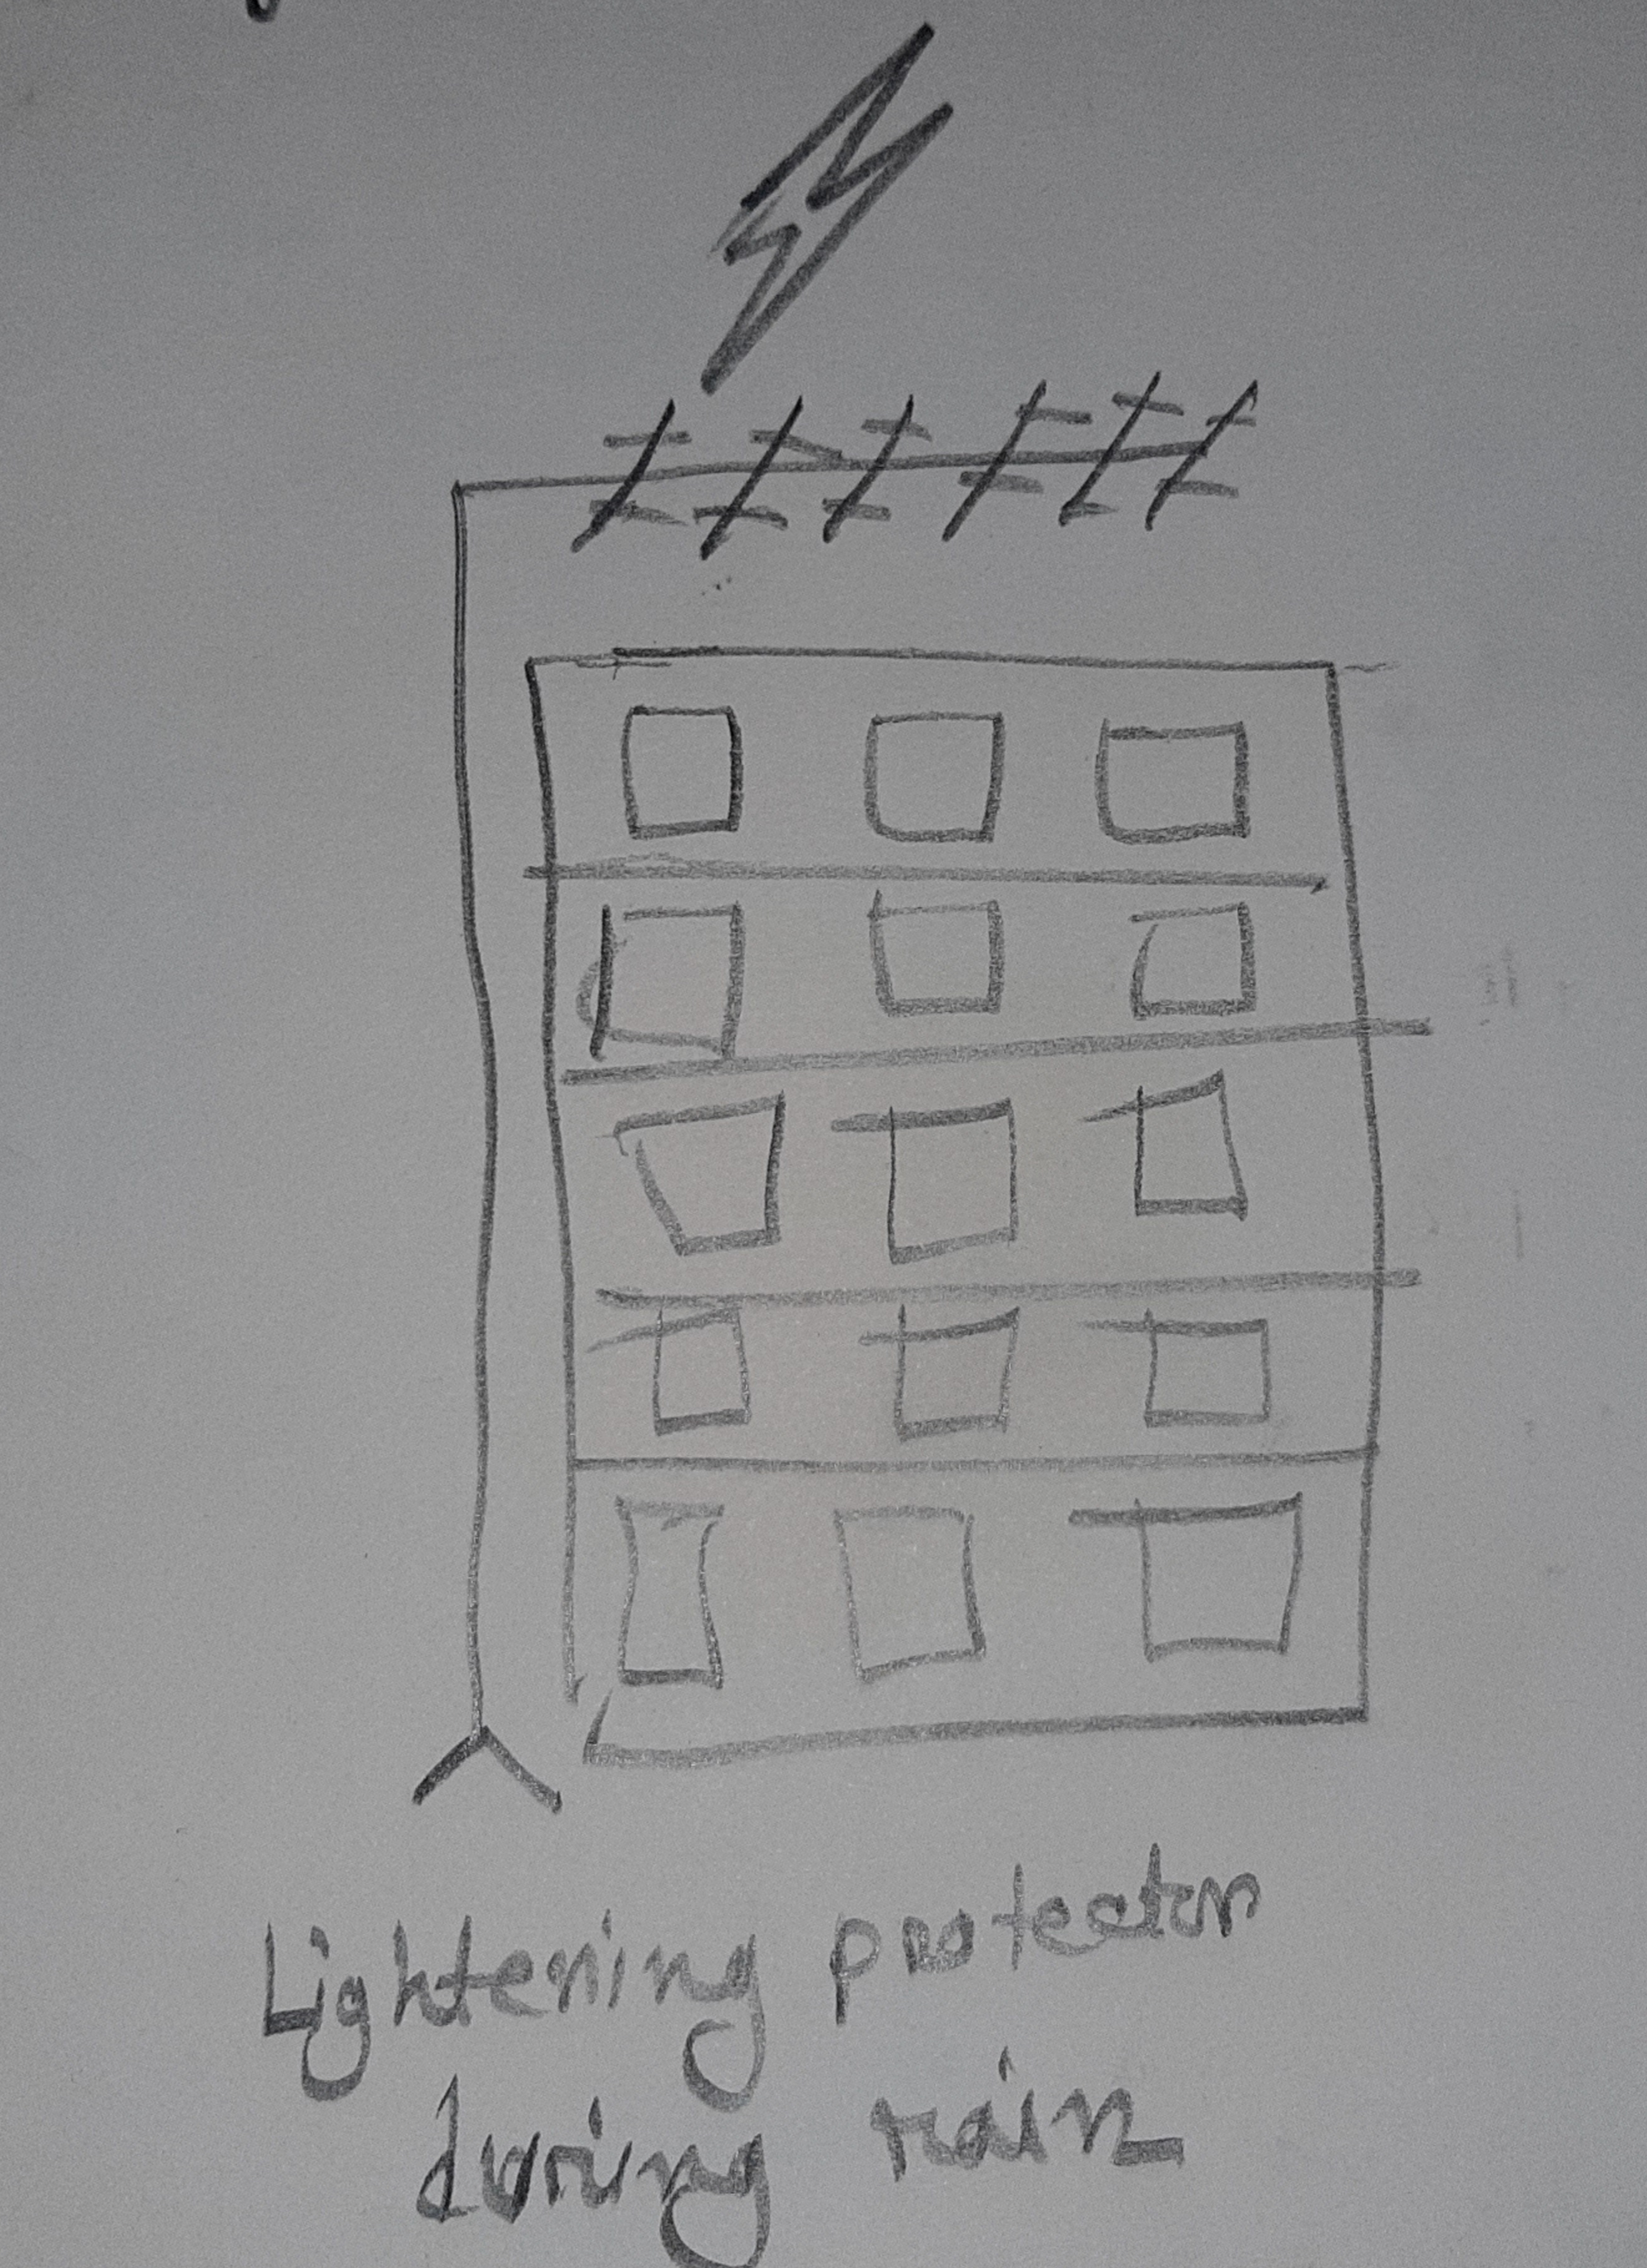 Lightening protector
during rain